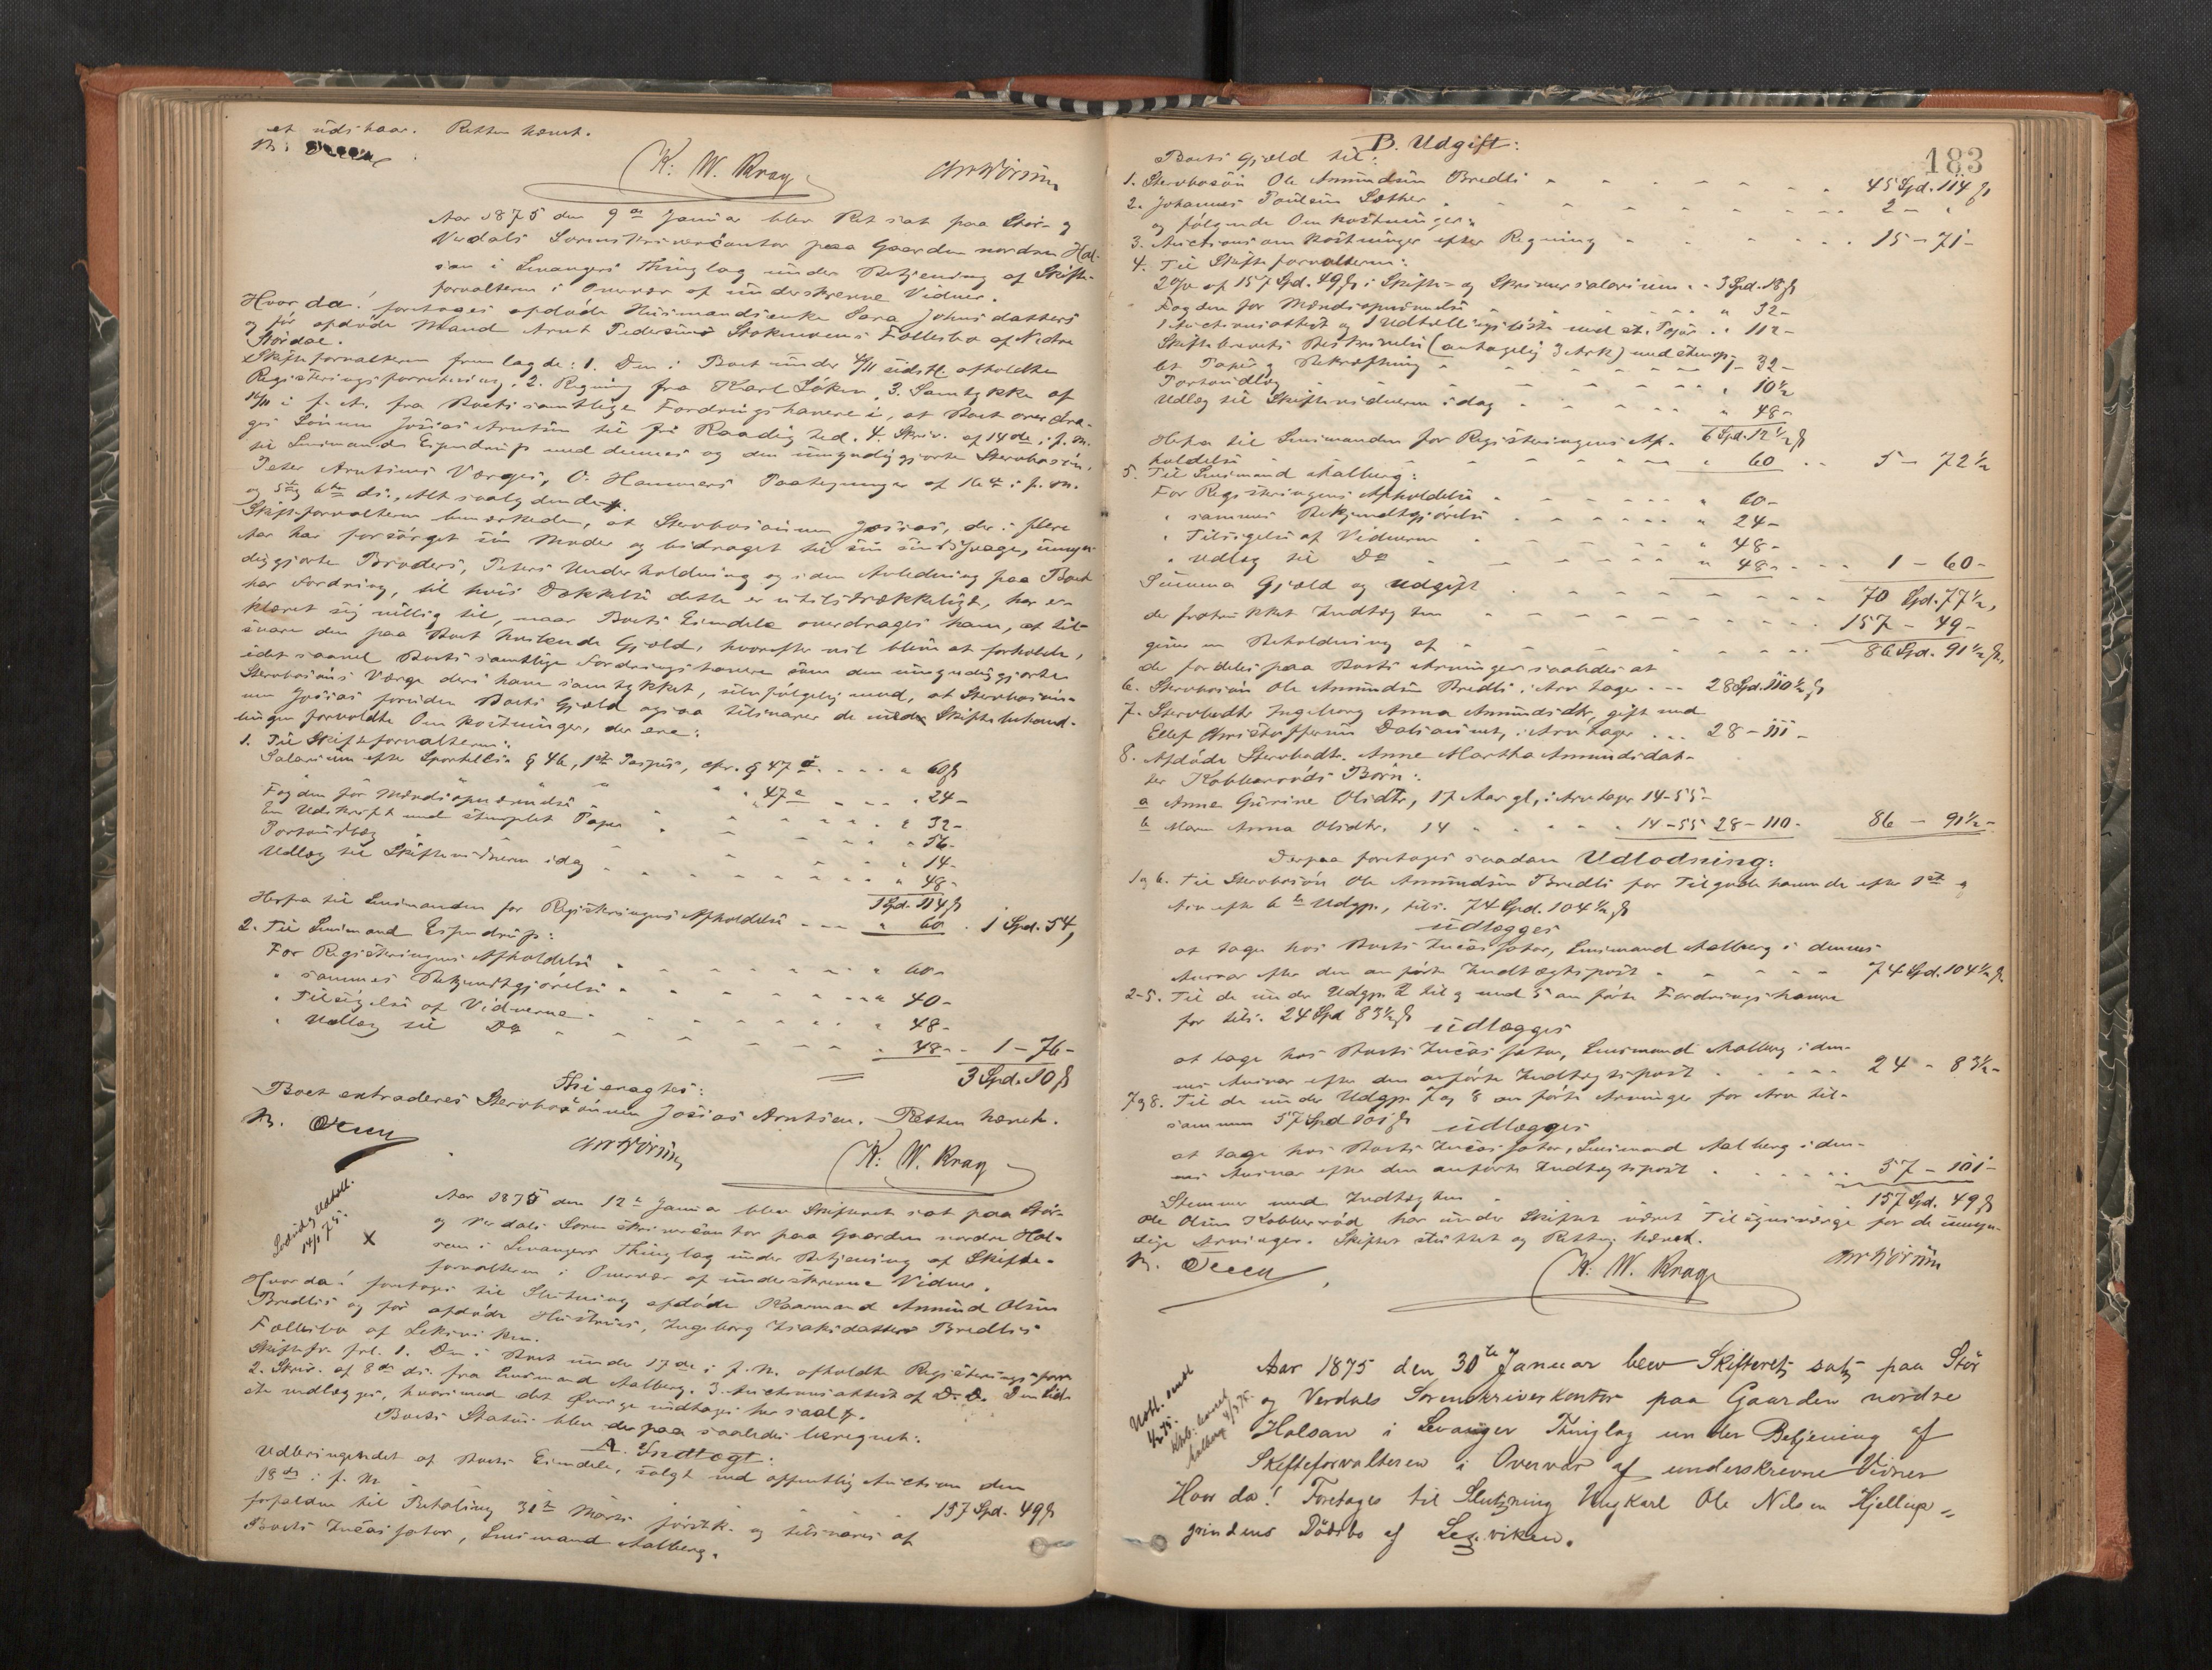 et udstaar. Retten hævet.
K. W. Krag
Aar 1875 den 9de Januar blev Ret sat paa Stör- og
Verdals Sorenskrivercontor paa Gaarden nordre Hal-
san i Levangers Thinglag under Betjening af Skifte-
forvalteren i Overvær af underskrevne Vidner.
Hvor da! foretoges afdöde Huusmandsenke Sara Johnsdatters
og för afdöde Mand Arnt Pedersens Stokmoens Fællesbo af Nedre
Stördal.
Skifteforvalteren fremlagde: 1. Den i Boet under 4/11 sidstl. afholdte
Registreringsforretning. 2. Regning fra Karl Löken. 3. Samtykke af
16/11 i f. A. fra Boets samtlige Fordringshavere i, at Boet overdra-
ges Sönnen Josias Arntsen til fri Raadighed. 4. Skriv. af 14de i f. M.
til Lensmanden Espenstrup med dennes og den umyndiggjorte Stervbosön,
Peter Arntsens Værges, O. Hammers Paategninger af 16de i f. M.
og 5te og 6te ds., Alt saalydende #.
Skifteforvalteren bemærkede, at Stervbosönnen Josias, der i flere
Aar har forsörget sin Moder og bidraget til sin sindssvage, umyn-
diggjorte Broders, Peters Underholdning og i den Anledning paa Boet
har Fordring, til hvis Dækkelse dette er utilstrækkeligt, har er-
klæret sig villig til, naar Boets Eiendele overdrages ham, at til-
svare den paa Boet heftende Gjæld, hvorefter vil blive at forholde,
idet saavel Boets samtlige Fordringshavere som den umyndiggjorte
Stervbosöns Værge deri have samtykket, selvfölgelig mod, at Stervbosön-
nen Josias foruden Boets Gjæld ogsaa tilsvarer de ved Skiftebehand-
lingen forvoldte Omkostninger, der ere:
1. Til Skifteforvalteren:
Salarium efter Sportell. § 46, 1ste Passus, cfr. § 47 d. - - - " 60 ß
Fogden for Mandsopnævnelse " " 47 e - - - " 24 -
En Udskrift med stemplet Papir - - - " 32 -
Portoudlæg - - - " 56 -
" 14 -
Udlæg til Skiftevidnerne idag - - - " 48 -
1 Spd. 114 ß
Herfra til Lensmanden for Registreringens Afholdelse - - - " 60 . 1 Spd. 54,
2. Til Lensmand Espenstrup:
For Registreringens Afholdelse - - - " 60 -
" sammes Bekjendtgjörelse - - - " 40 -
" Tilsigelse af Vidnerne - - - " 48 -
" Udlæg til Do - - - " 48 - - 1 - 76 -
3 Spd. 10 ß
Thi eragtes:
Boet extraderes Stervbosönnen Josias Arntsen. - Retten hævet.
K. W. Krag
14/1 75.
X
Aar 1875 den 12te Januar blev Skifteret sat paa Stör-
og Verdals Sorenskrivercontor paa Gaarden nordre Hal-
san i Levangers Thinglag under Betjening af Skifte-
forvalteren i Overvær af underskrevne Vidner.
Hvor da! foretoges til Slutning afdöde Kaarmand Amund Olsen
Bredlis og för afdöde Hustrues, Ingeborg Isaksdatters Bredlis
Fællesbo af Leksviken.
Skiftefr. frl. 1. Den i Boet under 17de i f. M. afholdte Registreringsforr.
2. Skriv. af 8de ds. fra Lensmand Aalberg. 3. Auctionsattest af D. D. Den sid-
ste vedlægges, hvorimod det Övrige indtages her saal. #.
Boets Status blev derpaa saaledes beregnet:
A. Indtægt:
Udbringendet af Boets Eiendele, solgt ved offentlig Auction den
18de i f. M.
forfalden til Betaling 31te Marts förstk. og tilsvares af
157 Spd. 49 ß
Boets Incassator, Lensmand Aalberg.
183
B. Udgift:
Boets Gjæld til:
1. Stervbosön Ole Amundsen Bredli - - - 45 Spd. 114 ß
2. Johannes Paulsen Sæther - - - 2 - "
og fölgende Omkostninger:
3. Auctionsomkostninger efter Regning - - - 15 - 71 -
4. Til Skifteforvalteren:
2 % af 157 Spd. 49 ß i Skifte- og Skriversalarium - - 3 Spd. 18 ß
Fogden for Mandsopnævnelse - - " 32 -
1 Auctionsattest og 1 Udtællingsliste med st. Papir . . 112 -
Skiftebrevets Beskrivelse (antagelig 3 Ark) med stemp-
let Papir og Bekræftning - - - 1 - 32 -
Portoudlæg - - - " 10 ½
Udlæg til Skiftevidnerne idag - - - " 48 -
6 Spd. 12 ½ ß
Herfra til Lensmanden for Registreringens Af-
holdelse - - - " 60 . . 5 - 72 ½
5. Til Lensmand Aalberg:
For Registreringens Afholdelse - - - " 60 -
" sammes Bekjendtgjörelse - - - " 24 -
" Tilsigelse af Vidnerne - - - " 48 -
" Udlæg til Do - - - " 48 - - - 1 - 60 -
Summa Gjæld og Udgift - - - 70 Spd. 77 ½,
der fratrukket Indtægten - - - 157 - 49 -
giver en Beholdning af - - - 86 Spd. 91 ½ ß,
der fordeles paa Boets Arvinger saaledes at
6. Stervbosön Ole Amundsen Bredli i Arv tager - - 28 Spd. 110 ½ ß
7. Stervbodtr. Ingeborg Anna Amundsdtr., gift med
Ellef Christoffersen Dalsaunet, i Arv tager . . . 28 - 111 -
8. Afdöde Stervbodtr. Anne Martha Amundsdat-
ter Kobberröds Börn:
a Anne Gurine Olsdtr., 17 Aar gl., i Arv tager 14 - 55 -
b Maren Anna Olsdtr. 14 " " " " 14 - 55 28 - 110 - 86 - 91 ½ -
Derpaa foretoges saadan Udlodning:
1 og 6. Til Stervbosön Ole Amundsen Bredli for Tilgodehavende efter 1ste og
Arv efter 6te Udgp., tils. 74 Spd. 104 ½ ß
udlægges
at tage hos Boets Incassator, Lensmand Aalberg i dennes
Ansvar efter den anförte Indtægtspost - - - 74 Spd. 104 ½ ß.
2-5. Til de under Udgp. 2 til og med 5 anförte Fordringshavere
for tils. 24 Spd. 83 ½ ß udlægges
at tage hos Boets Incassator, Lensmand Aalberg i den-
nes Ansvar efter den anförte Indtægtspost - - - 24 - 83 ½ -
7 og 8. Til de under Udgp. 7 og 8 anförte Arvinger for Arv til-
sammen 57 Spd. 101 ß udlægges
at tage hos Boets Incassator, Lensmand Aalberg i den-
nes Ansvar efter den anförte Indtægtspost - - - 57 - 101 -
Stemmer med Indtægten - - - 157 Spd. 49 ß
Ole Olsen Kobberröd har under Skiftet været Tilsynsværge for de umyn-
dige Arvinger. Skiftet sluttet og Retten hævet.
K. W. Krag
Aar 1875 den 30te Januar blev Skifteret sat paa Stör
og Verdals Sorenskriverkontor paa Gaarden nordre
Halsan i Levanger Thinglag under Betjening af
Skifteforvalteren i Overvær af underskrevne Vidner
Hvor da! Foretoges til Slutning Ungkarl Ole Nilsen Hjellup-
grindens Dödsbo af Lexviken.